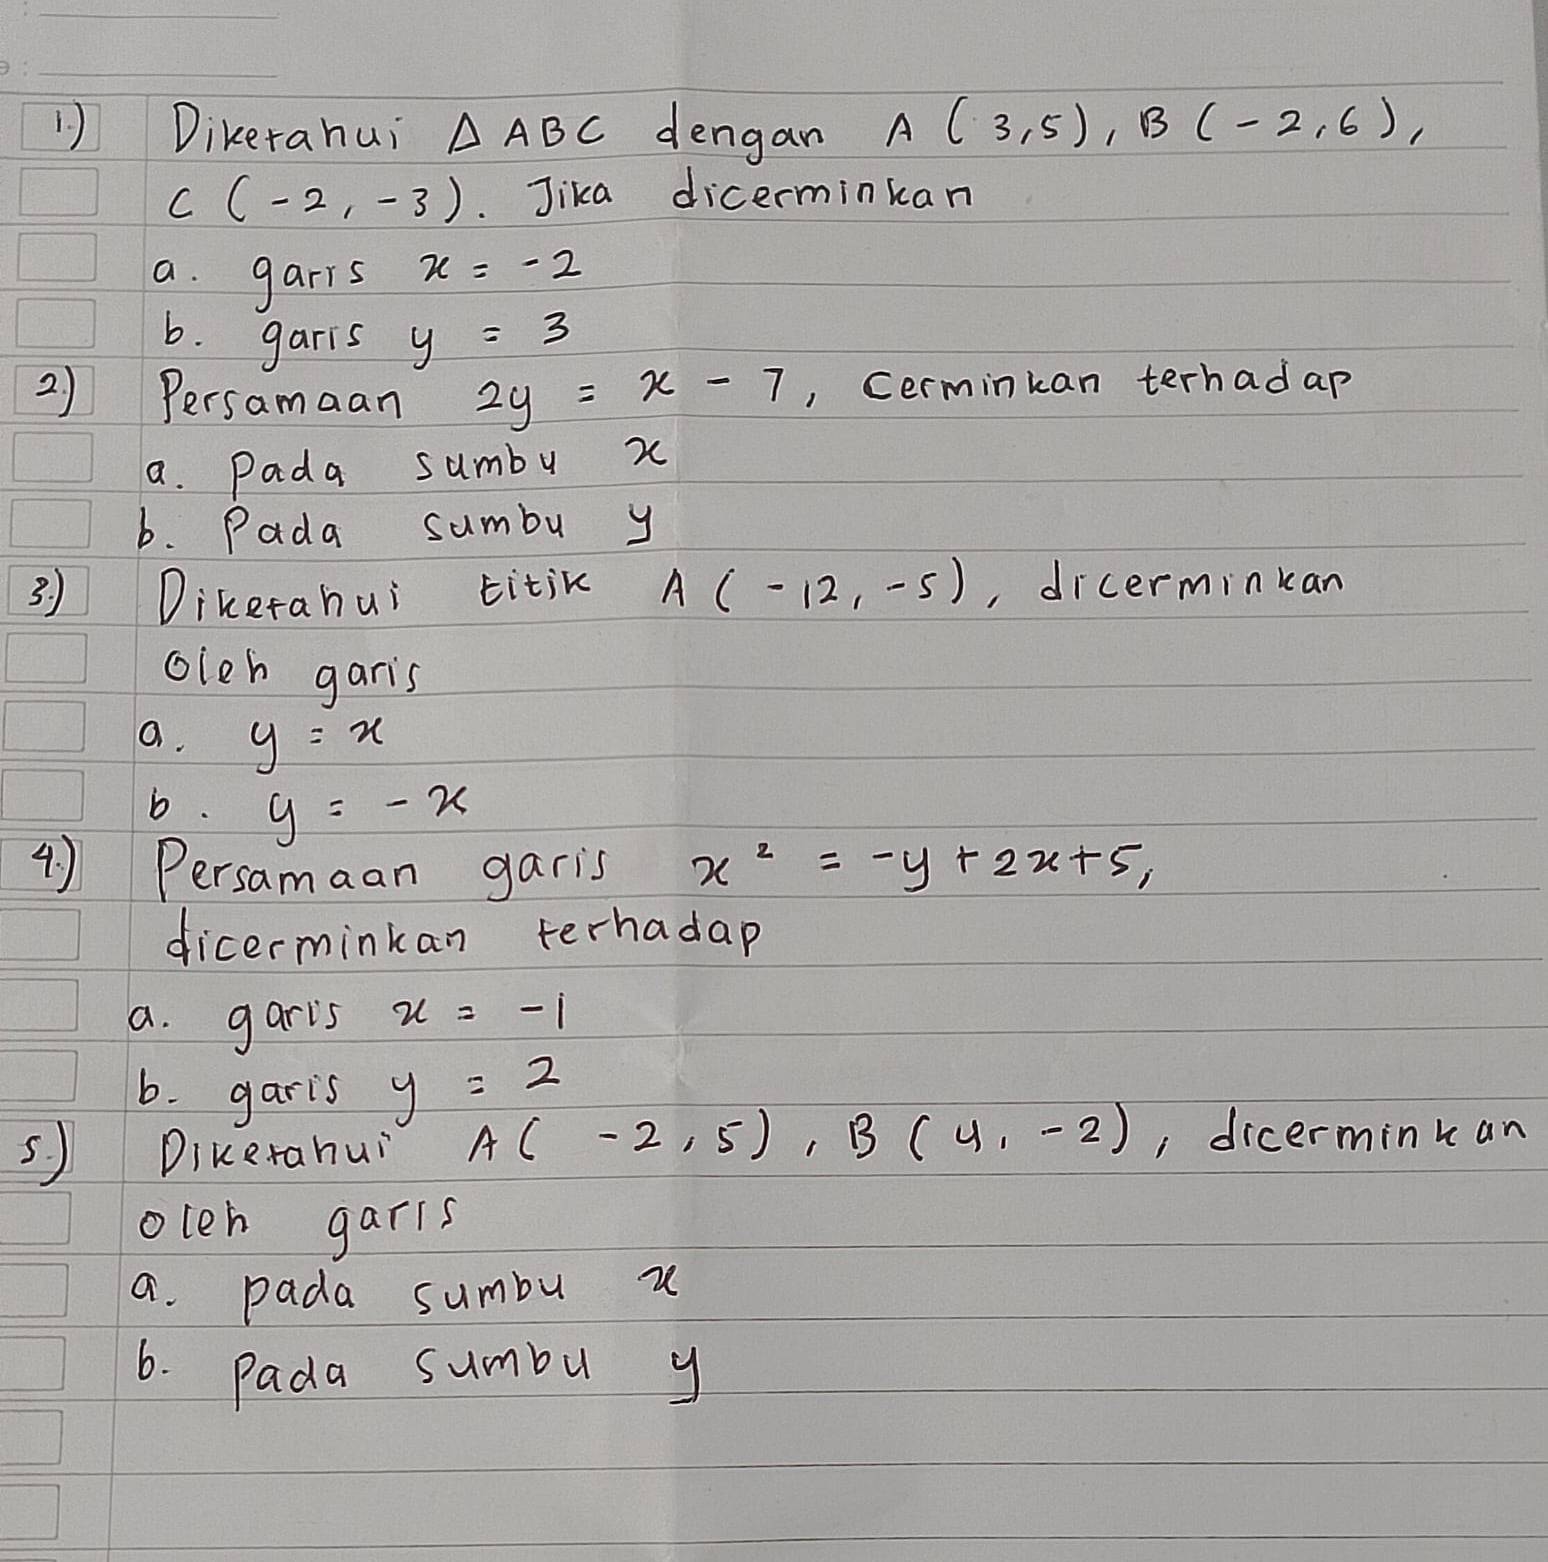 1.) Diketahui Δ ABC dengan A (3,5), B (-2,6),
C (-2, -3). Jika dicerminkan
a. garis x = -2
b. garis y = 3
2.) Persamaan 2y = x - 7, Cerminkan terhadap
a. Pada sumbu x
b. Pada sumbu y
3.) Diketahui titik A (-12, -5), dicerminkan
oleh garis
a. y = x
b. y = -x
4.) Persamaan garis x² = -y + 2x + 5,
dicerminkan terhadap
a. garis x = -1
b. garis y = 2
5.) Diketahui A( -2, 5), B (4, -2), dicerminkan
oleh garis
a. pada sumbu x
b. Pada sumbu y